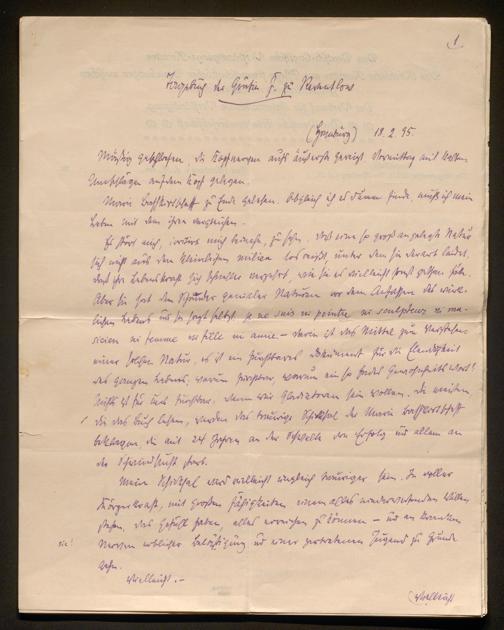 1
Tagebuch der Gräfin F. zu Reventlow
(Hamburg) 18.2.95.
Mässig geschlafen, die Kopfnerven aufs äusserste gereizt. Vormittag mit kalten
Umschlägen auf dem Kopf gelegen.
Marie Baschkirtscheff zu Ende gelesen. Obgleich ich es dumm finde, muss ich mein
Leben mit dem ihren vergleichen.
Es stört mich, zu sehen, dass eine so gross angelegte Natur
sich nicht aus dem kleinlichen milieu losreisst, unter dem sie derart leidet,
dass ihre Lebenskraft sich schneller verzehrt, wie sie es vielleicht sonst gethan hätte.
Aber sie hat den Schauder genialer Naturen vor dem Anfassen des wirk-
lichen Lebens und sie sagt selbst: je ne suis ni peintre, ni sculpteur ni mu-
sicien ni femme ni fille ni amie – darin ist das Mittel zum Verstehen
einer solchen Natur, es ist ein furchtbares dokument für die Elendigkeit
des ganzen Lebens, warum furchtbar, warum ein so
Nichts ist für uns furchtbar, denn wir Gladiatoren sein wollen. Die meisten,
die das Buch lesen, werden das traurige Schicksal der Marie Baschkirtscheff
beklagen die mit 24 Jahren an der Schwelle von Erfolg und allem an
der Schwindsucht starb.
Mein Schicksal wird vielleicht ungleich trauriger sein. In voller
Körperkraft, mit grossen Fähigkeiten einem alles niederreissenden Willen
stehen, das Gefühl haben, alles erreichen zu können – und an kranken
Nerven erblicher Belastung und einer zertretenen Jugend zu Grunde
sic!
gehn.
vielleicht. –
(vielleicht